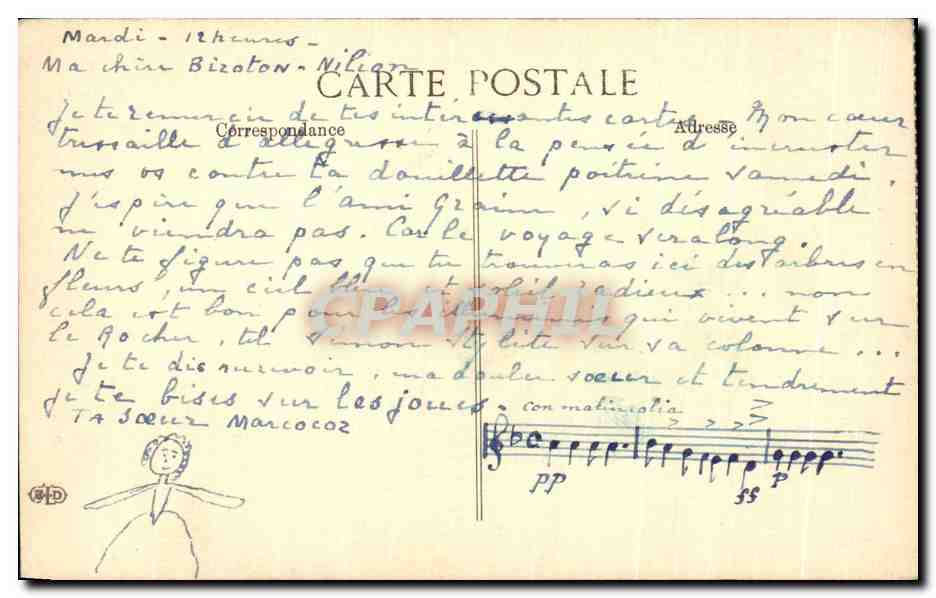 Mardi - 12 heures -
Ma chère Bizoton - Nilion
CARTE POSTALE
Je te remercie de tes intéressantes cartes - Mon cœur
Correspondance
Adresse
tressaille d'allégresse à la pensée d'incruster
mes os contre ta douillette poitrine samedi.
J'espère que l'ami Graim, si désagréable
ne viendra pas. Car le voyage sera long.
Ne te figure pas que tu trouveras ici des arbres en
fleurs, un ciel bleu et soleil radieux ... non
cela est bon pour les qui vivent sur
le Rocher, tel Simon Stylite sur sa colonne ...
Je te dis au revoir, ma douce sœur et tendrement
je te bises sur les joues.
TA SŒUR MARCOCOZ
con malincolia
pp
ff
p
ELD
CPAPHIL